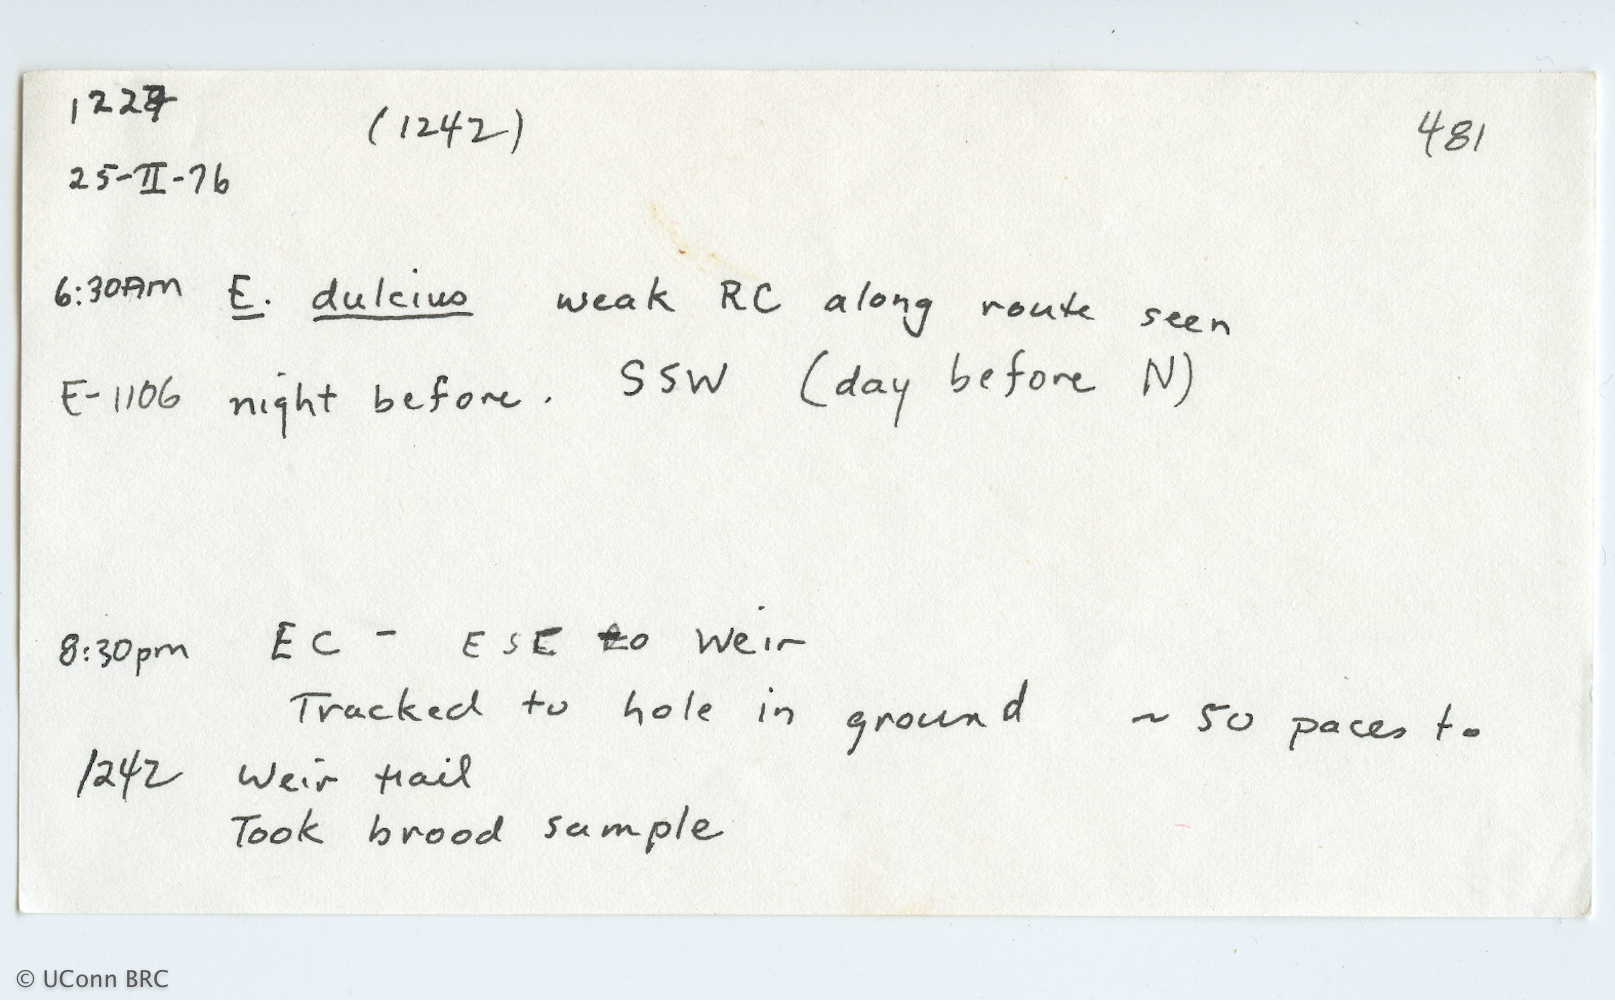 (1242)
481
25-II-76
6:30Am E. dulcius weak RC along route seen
E-1106 night before. SSW (day before N)
8:30pm EC - ESE to Weir
Tracked to hole in ground ~ 50 paces to
1242 Weir trail
Took brood sample
© UConn BRC